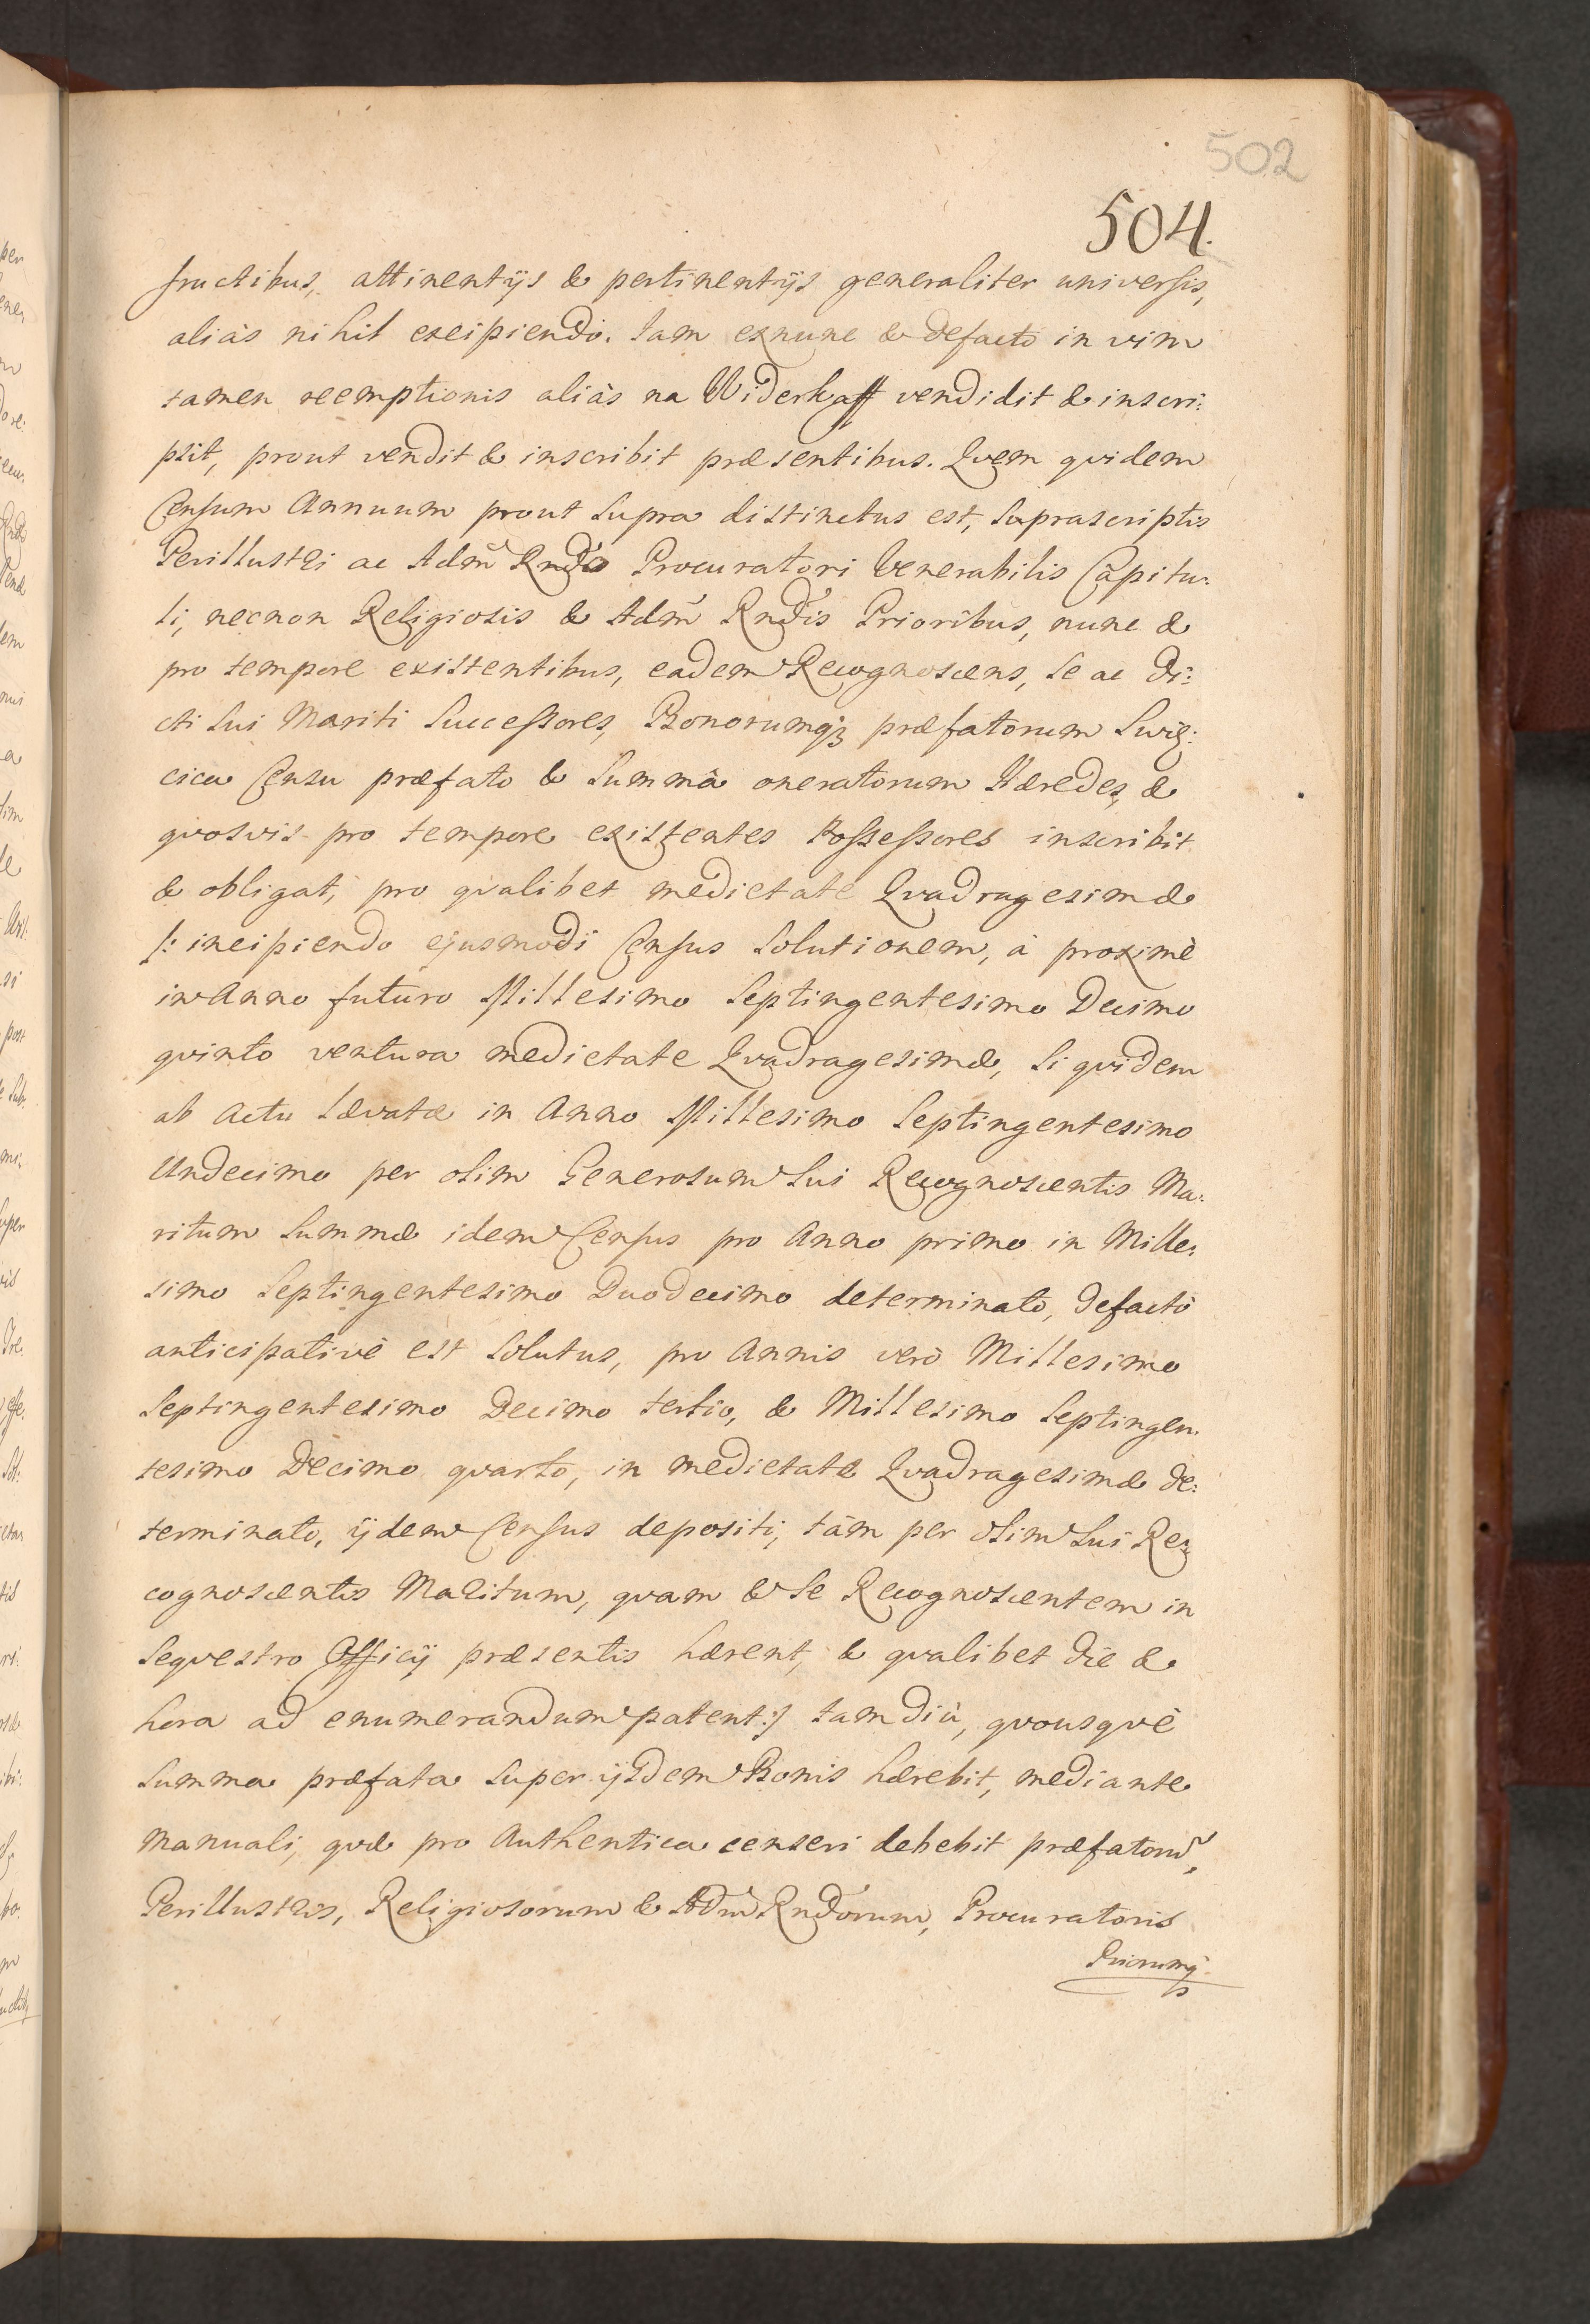 502
504.
fructibus, attinentijs & pertinentijs generaliter universis,
aliàs nihil excipiendo. Iam exnunc & defacto in vim
tamen reemptionis aliàs na Widerkaff vendidit & inscri:
psit, prout vendit & inscribit præsentibus. Qvem qvidem
Censum Annuum prout supra distinctus est, suprascriptis
Perillustri ac Adm̃ Rndo Procuratori Venerabilis Capitu:
li, necnon Religiosis & Adm̃ Rndis Prioribus, nunc &
pro tempore existentibus, eadem Recognoscens, se ac Di:
cti sui Mariti Successores, Bonorumq3 præfatorum Swię:
cica Censu præfato & Summâ oneratorum Hæredes, &
qvosvis pro tempore existentes Possessores inscribit
& obligat, pro qvalibet medietate Qvadragesimæ
/: incipiendo ejusmodi Census solutionem, à proximè
in Anno futuro Millesimo Septingentesimo Decimo
qvinto ventura medietate Qvadragesimæ, si qvidem
ab Actu Lævatæ in Anno Millesimo Septingentesimo
Undecimo per olim Generosum sui Recognoscentis Ma:
ritum Summæ idem Census pro Anno primo in Mille:
simo Septingentesimo Duodecimo determinato, defactò
anticipativè est solutus, pro Annis verò Millesimo
Septingentesimo Decimo tertio, & Millesimo Septingen:
tesimo Decimo qvarto, in medietate Qvadragesimæ de:
terminato, ijdem Census depositi, tàm per olim sui Re:
cognoscentis Maritum, qvam & se Recognoscentem in
Seqvestro Officij præsentis hærent, & qvalibet die &
hora ad enumerandum patent :/ tamdiù, qvousqvè
Summa præfata super ijsdem Bonis hærebit, mediante
Manuali, qvæ pro Authentica censeri debebit præfatorũ,
Perillustris, Religiosorum & Adm̃ Rndorum, Procuratoris
Priorumq̃